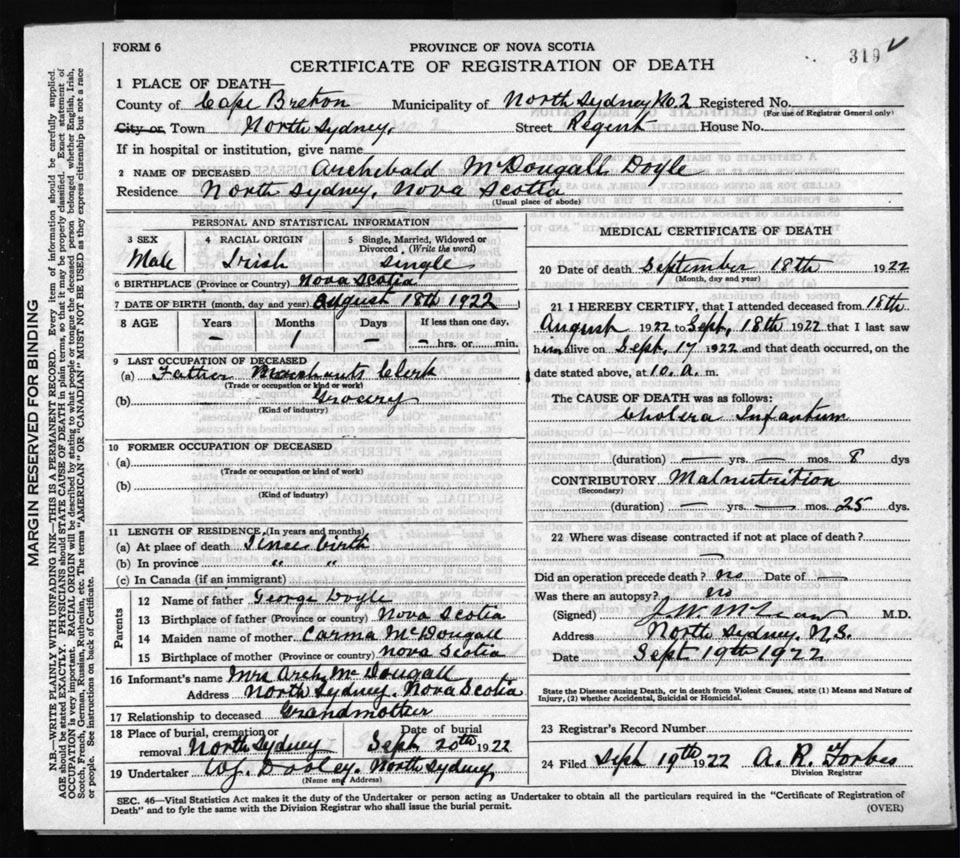 FORM 6
PROVINCE OF NOVA SCOTIA
319
CERTIFICATE OF REGISTRATION OF DEATH
1 PLACE OF DEATH—
County of Cape Breton Municipality of North Sydney No. 2 Registered No.
(For use of Registrar General only)
City or Town North Sydney, Street Regent House No.
If in hospital or institution, give name
2 NAME OF DECEASED Archibald McDougall Doyle
Residence North Sydney, Nova Scotia
(Usual place of abode)
PERSONAL AND STATISTICAL INFORMATION
3 SEX 4 RACIAL ORIGIN 5 Single, Married, Widowed or Divorced. (Write the word)
Male Irish Single
6 BIRTHPLACE (Province or Country) Nova Scotia
7 DATE OF BIRTH (month, day and year) August 18th 1922
8 AGE Years Months Days If less than one day,
— 1 — — hrs. or min.
9 LAST OCCUPATION OF DECEASED
(a) Father Merchants Clerk
(Trade or occupation or kind or work)
(b) Grocery
(Kind of industry)
10 FORMER OCCUPATION OF DECEASED
(a)
(Trade or occupation or kind of work)
(b)
(Kind of industry)
11 LENGTH OF RESIDENCE (In years and months)
(a) At place of death Since birth
(b) In province " "
(c) In Canada (if an immigrant)
Parents
12 Name of father George Doyle
13 Birthplace of father (Province or country) Nova Scotia
14 Maiden name of mother Carma McDougall
15 Birthplace of mother (Province or country) Nova Scotia
16 Informant's name Mrs Arch. McDougall
Address North Sydney, Nova Scotia
17 Relationship to deceased Grandmother
18 Place of burial, cremation or removal North Sydney Date of burial Sept 20th 1922
19 Undertaker W.J. Dooley. North Sydney
(Name and Address)
MEDICAL CERTIFICATE OF DEATH
20 Date of death September 18th 1922
(Month, day and year)
21 I HEREBY CERTIFY, that I attended deceased from 18th
August 1922 to Sept. 18th 1922 that I last saw
him alive on Sept. 17 1922 and that death occurred, on the
date stated above, at 10. a. m.
The CAUSE OF DEATH was as follows:
Cholera Infantum
(duration) — yrs. — mos. 8 dys
CONTRIBUTORY Malnutrition
(Secondary)
(duration) — yrs. — mos. 25 dys.
22 Where was disease contracted if not at place of death?
—
Did an operation precede death? no Date of —
Was there an autopsy? no
(Signed) J. W. McLean M.D.
Address North Sydney, N.S.
Date Sept 19th 1922
State the Disease causing Death, or in death from Violent Causes, state (1) Means and Nature of
Injury, (2) whether Accidental, Suicidal or Homicidal.
23 Registrar's Record Number
24 Filed Sept 19th 1922 A. R. Forbes
Division Registrar
SEC. 46—Vital Statistics Act makes it the duty of the Undertaker or person acting as Undertaker to obtain all the particulars required in the "Certificate of Registration of
Death" and to fyle the same with the Division Registrar who shall issue the burial permit.
(OVER)
MARGIN RESERVED FOR BINDING
N.B.—WRITE PLAINLY WITH UNFADING INK—THIS IS A PERMANENT RECORD. Every item of information should be carefully supplied.
AGE should be stated EXACTLY. PHYSICIANS should STATE CAUSE OF DEATH in plain terms, so that it may be properly classified. Exact statement of
OCCUPATION is very important. RACIAL ORIGIN will be described by stating to what people or tongue the deceased person belonged whether English, Irish,
Scotch, French, German, Russian, Ruthenian, etc. The terms "AMERICAN" OR "CANADIAN" MUST NOT BE USED as they express citizenship but not a race
or people. See instructions on back of Certificate.